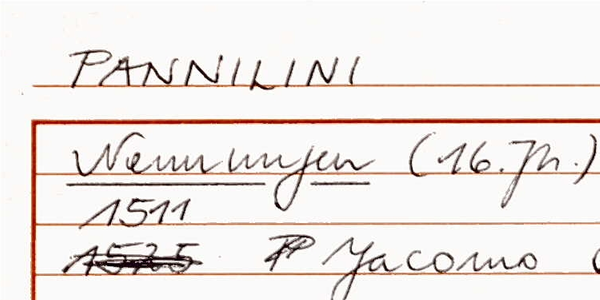 PANNILINI
Nennungen (16. Jh.)
1511
1525 Jacomo